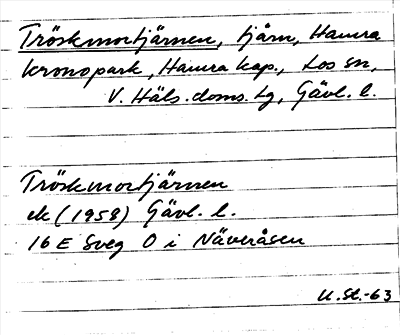 Tröskmortjärnen, tjärn, Hamra
kronopark, Hamra kap., Los sn,
V. Häls. doms. lg, Gävl. l.
Tröskmortjärnen
ek (1958) Gävl. l.
16 E Sveg O i Näveråsen
U. St.-63